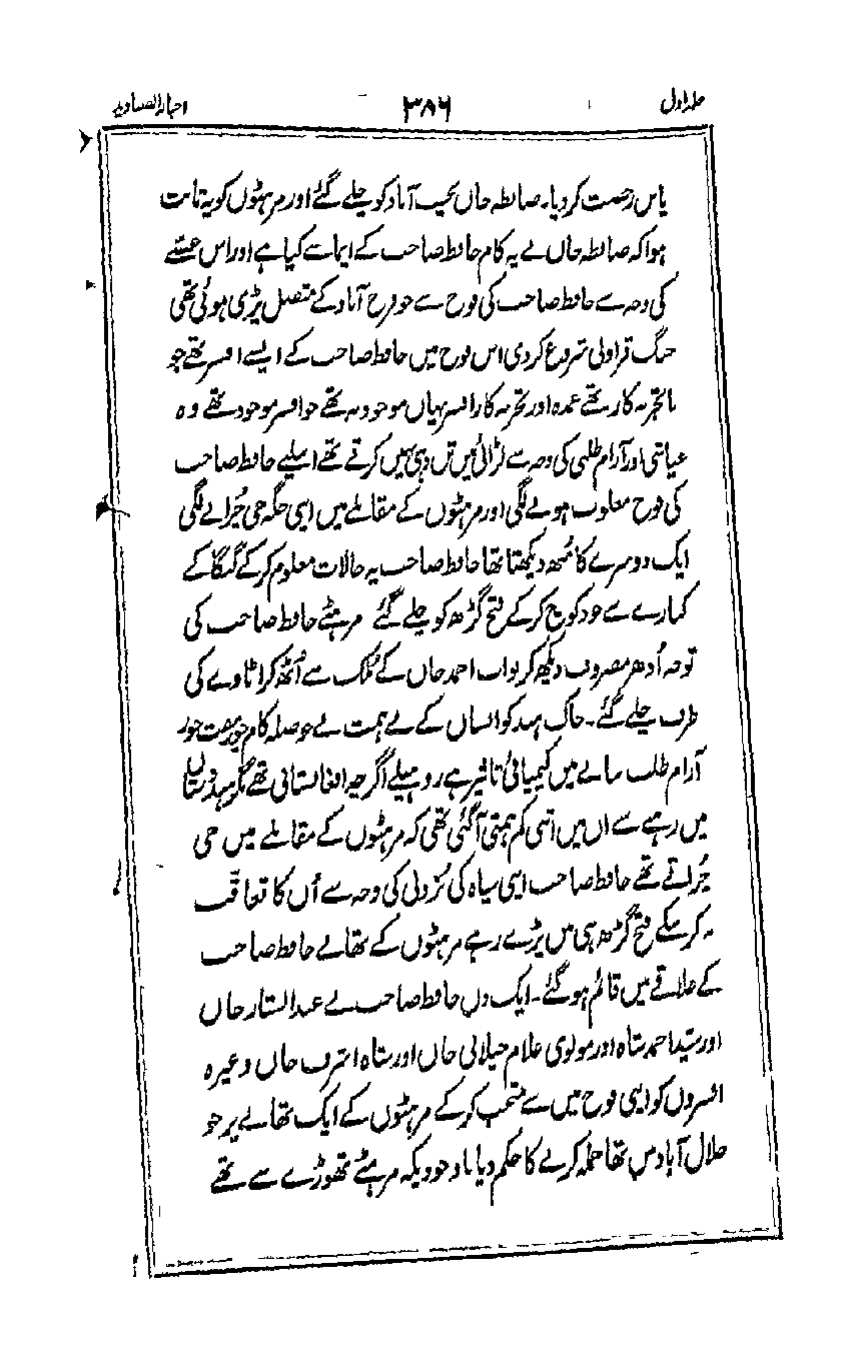 جلد اول ۳۸۶ اخبار الصنادید
پاس رخصت کردیا۔ ضابطہ خاں نجیب آباد کو چلے گئے اور مرہٹوں کو یہ ثابت
ہوا کہ ضابطہ خاں نے یہ کام حافظ صاحب کے ایما سے کیا ہے اور اس غصے
کی وجہ سے حافظ صاحب کی فوج سے جو فرخ آباد کے متصل پڑی ہوئی تھی
جنگ قراولی شروع کردی اس فوج میں حافظ صاحب کے ایسے افسر تھے جو
ناتجربہ کار تھے عمدہ اور تجربہ کار افسر یہاں موجود نہ تھے جو افسر موجود تھے وہ
عیاشی اور آرام طلبی کی وجہ سے لڑائی میں تن دہی نہیں کرتے تھے اسلیے حافظ صاحب
کی فوج مغلوب ہونے لگی اور مرہٹوں کے مقابلے میں اپنی جگہ جی چُرانے لگی
ایک دوسرے کا منھ دیکھتا تھا حافظ صاحب یہ حالات معلوم کرکے گنگا کے
کنارے سے خود کوچ کرکے فتح گڑھ کو چلے گئے مرہٹے حافظ صاحب کی
توجہ اُدھر مصروف دیکھ کر نواب احمد خاں کے مُلک سے اُٹھ کر اٹاوے کی
طرف چلے گئے۔ خاک ہند کو انساں کے بے ہمت بے حوصلہ کام چور مفت خور
آرام طلب بنانے میں کیمیائی تاثیر ہے روہیلے اگرچہ افغانستانی تھے مگر ہندوستان
میں رہنے سے اُن میں اتنی کم ہمتی آگئی تھی کہ مرہٹوں کے مقابلے میں جی
چُراتے تھے حافظ صاحب اپنی سپاہ کی بُزدلی کی وجہ سے اُن کا تعاقب
نہ کرسکے فتح گڑھ ہی میں پڑے رہے مرہٹوں کے تھانے حافظ صاحب
کے علاقے میں قائم ہوگئے۔ ایک دن حافظ صاحب نے عبدالستار خاں
اور سید احمد شاہ اور مولوی غلام جیلانی خاں اور شاہ اشرف خاں وغیرہ
افسروں کو اپنی فوج میں سے منتخب کرکے مرہٹوں کے ایک تھانے پر جو
جلال آباد میں تھا حملہ کرنے کا حکم دیا باوجودیکہ مرہٹے تھوڑے سے تھے